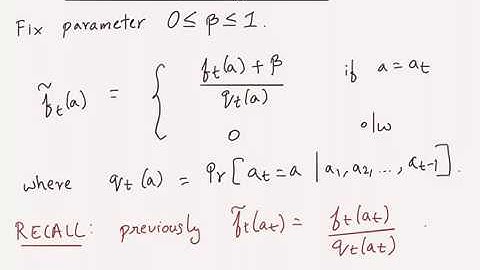 Fix parameter 0 ≤ β ≤ 1.
f̃_t(a) = { (f_t(a) + β) / q_t(a) if a = a_t
0 o/w
where q_t(a) = Pr[a_t = a | a_1, a_2, ..., a_{t-1}].
RECALL: previously f̃_t(a_t) = f_t(a_t) / q_t(a_t) .